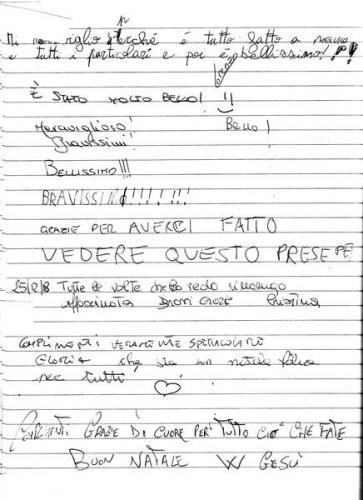 Mi meraviglio perché è tutto fatto a mano
e tutti i particolari e poi è bellissimo!!!!
È STATO MOLTO BELLO!
Meraviglioso! Bello!
Bravissimi!
BELLISSIMO!!!
BRAVISSIMI!!!!!!!
GRAZIE PER AVERCI FATTO
VEDERE QUESTO PRESEPE!
25/12/8 Tutte le volte che lo vedo rimango
affascinata Cristina
COMPLIMENTI VERAMENTE SPETTACOLARE
GLORIA che sia un natale felice
per tutti
GRAZIE DI CUORE PER TUTTO CIO' CHE FATE
BUON NATALE W GESÙ